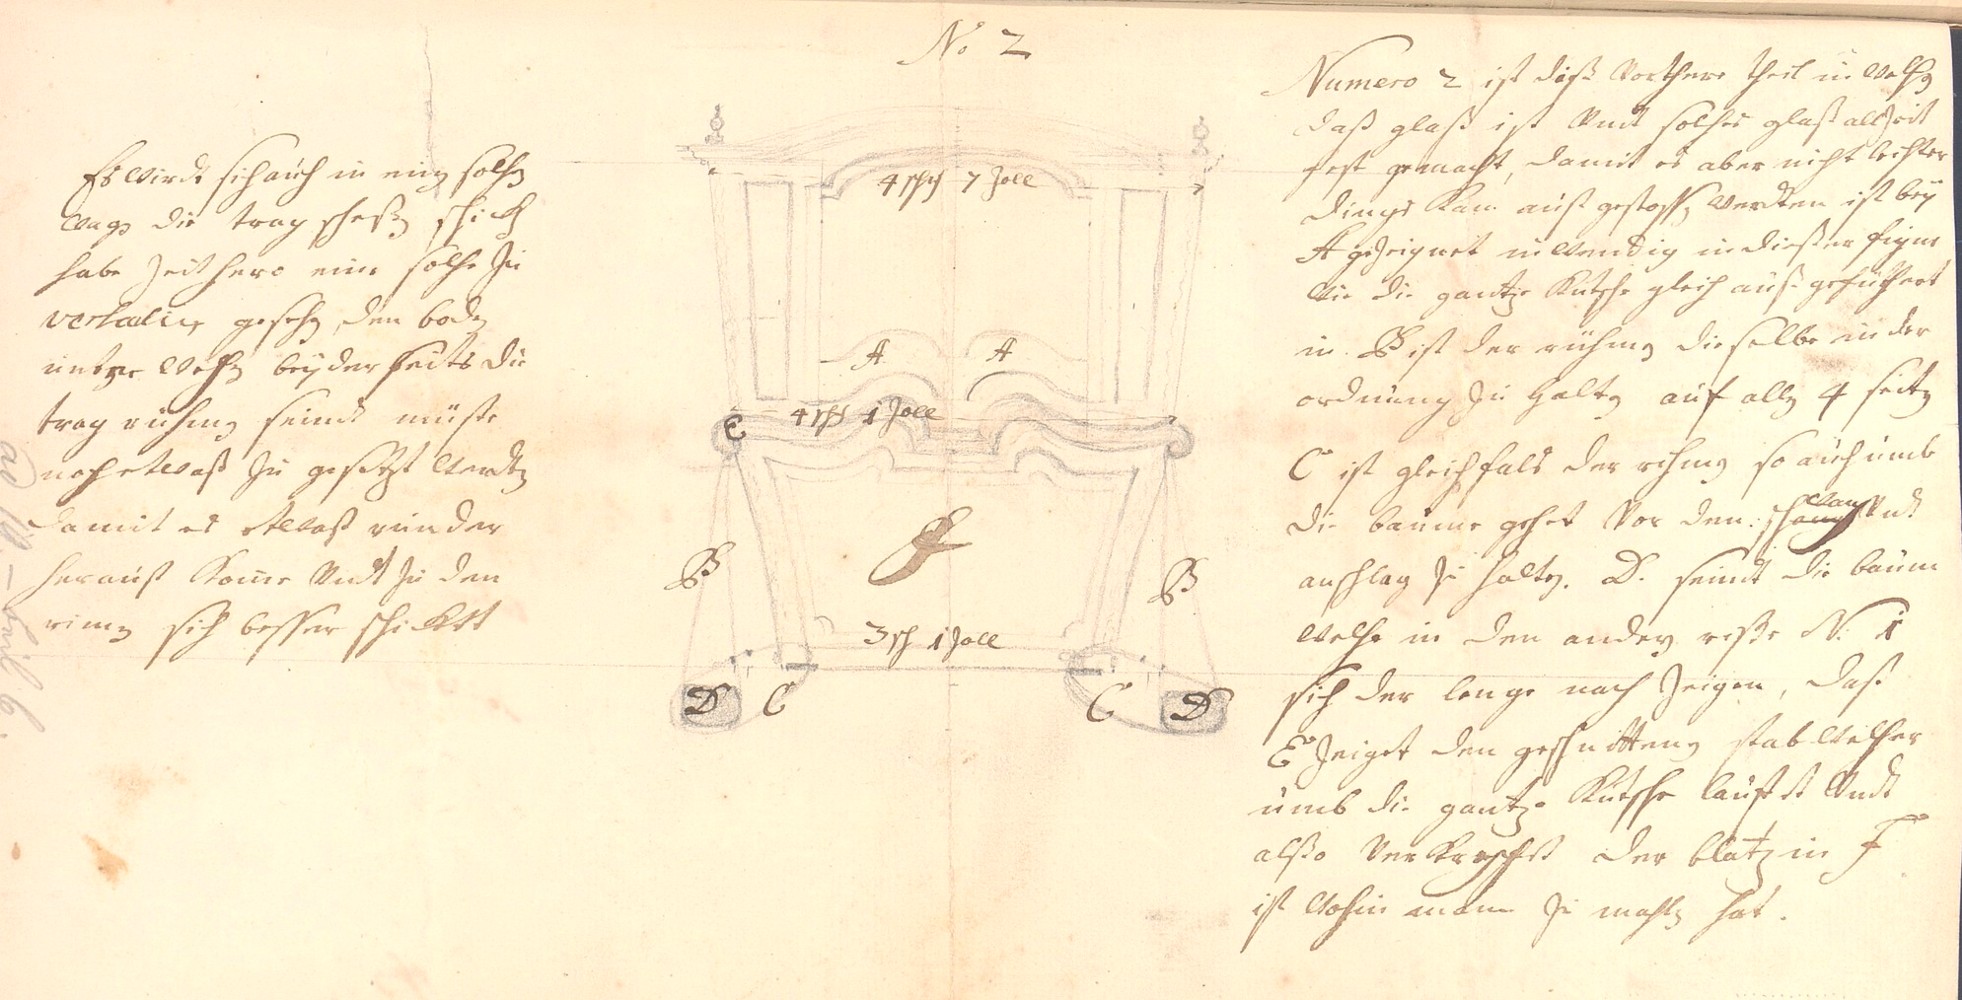 No 2
Es wirdt sich auch in ein solchen
wagen die trag schick
habe Zeit hero eine solche Zu
gesehen, den boden
unten welchen beyderseits die
trag rühmen seindt müste
noch etwaß Zu gesetzt werden
damit es etwaß runder
herauß kome undt Zu den
rimen sich besser schicket
4 sch 7 Zoll
A A
4 sch 1 Zoll
E
F
B B
3 sch 1 Zoll
D C C D
Numero 2 ist diß vorthere theil in welchen
daß glaß ist undt solches glaß all Zeit
fest gemacht, damit es aber nicht leichter
dings kan auß gestossen werdten ist bey
A gezeignet inwendig in dießer figur
wie die gantze kutsche gleich auß gefüthert
in. B ist der rühmen dieselbe in der
ordnung Zu halten auf allen 4 seiten
C ist gleichfals der rihmen so auch umb
die baume gehet vor den undt
anschlag Zu halten. D. seindt die baüm
welche in den andern riße N: 1
sich der lenge nach Zeigen, daß
E Zeiget den geschnittenen stab welcher
umb die gantze kutsche laufet undt
alßo verkröpfet der blatz in F
ist wohin mann Zu mahlen hat.